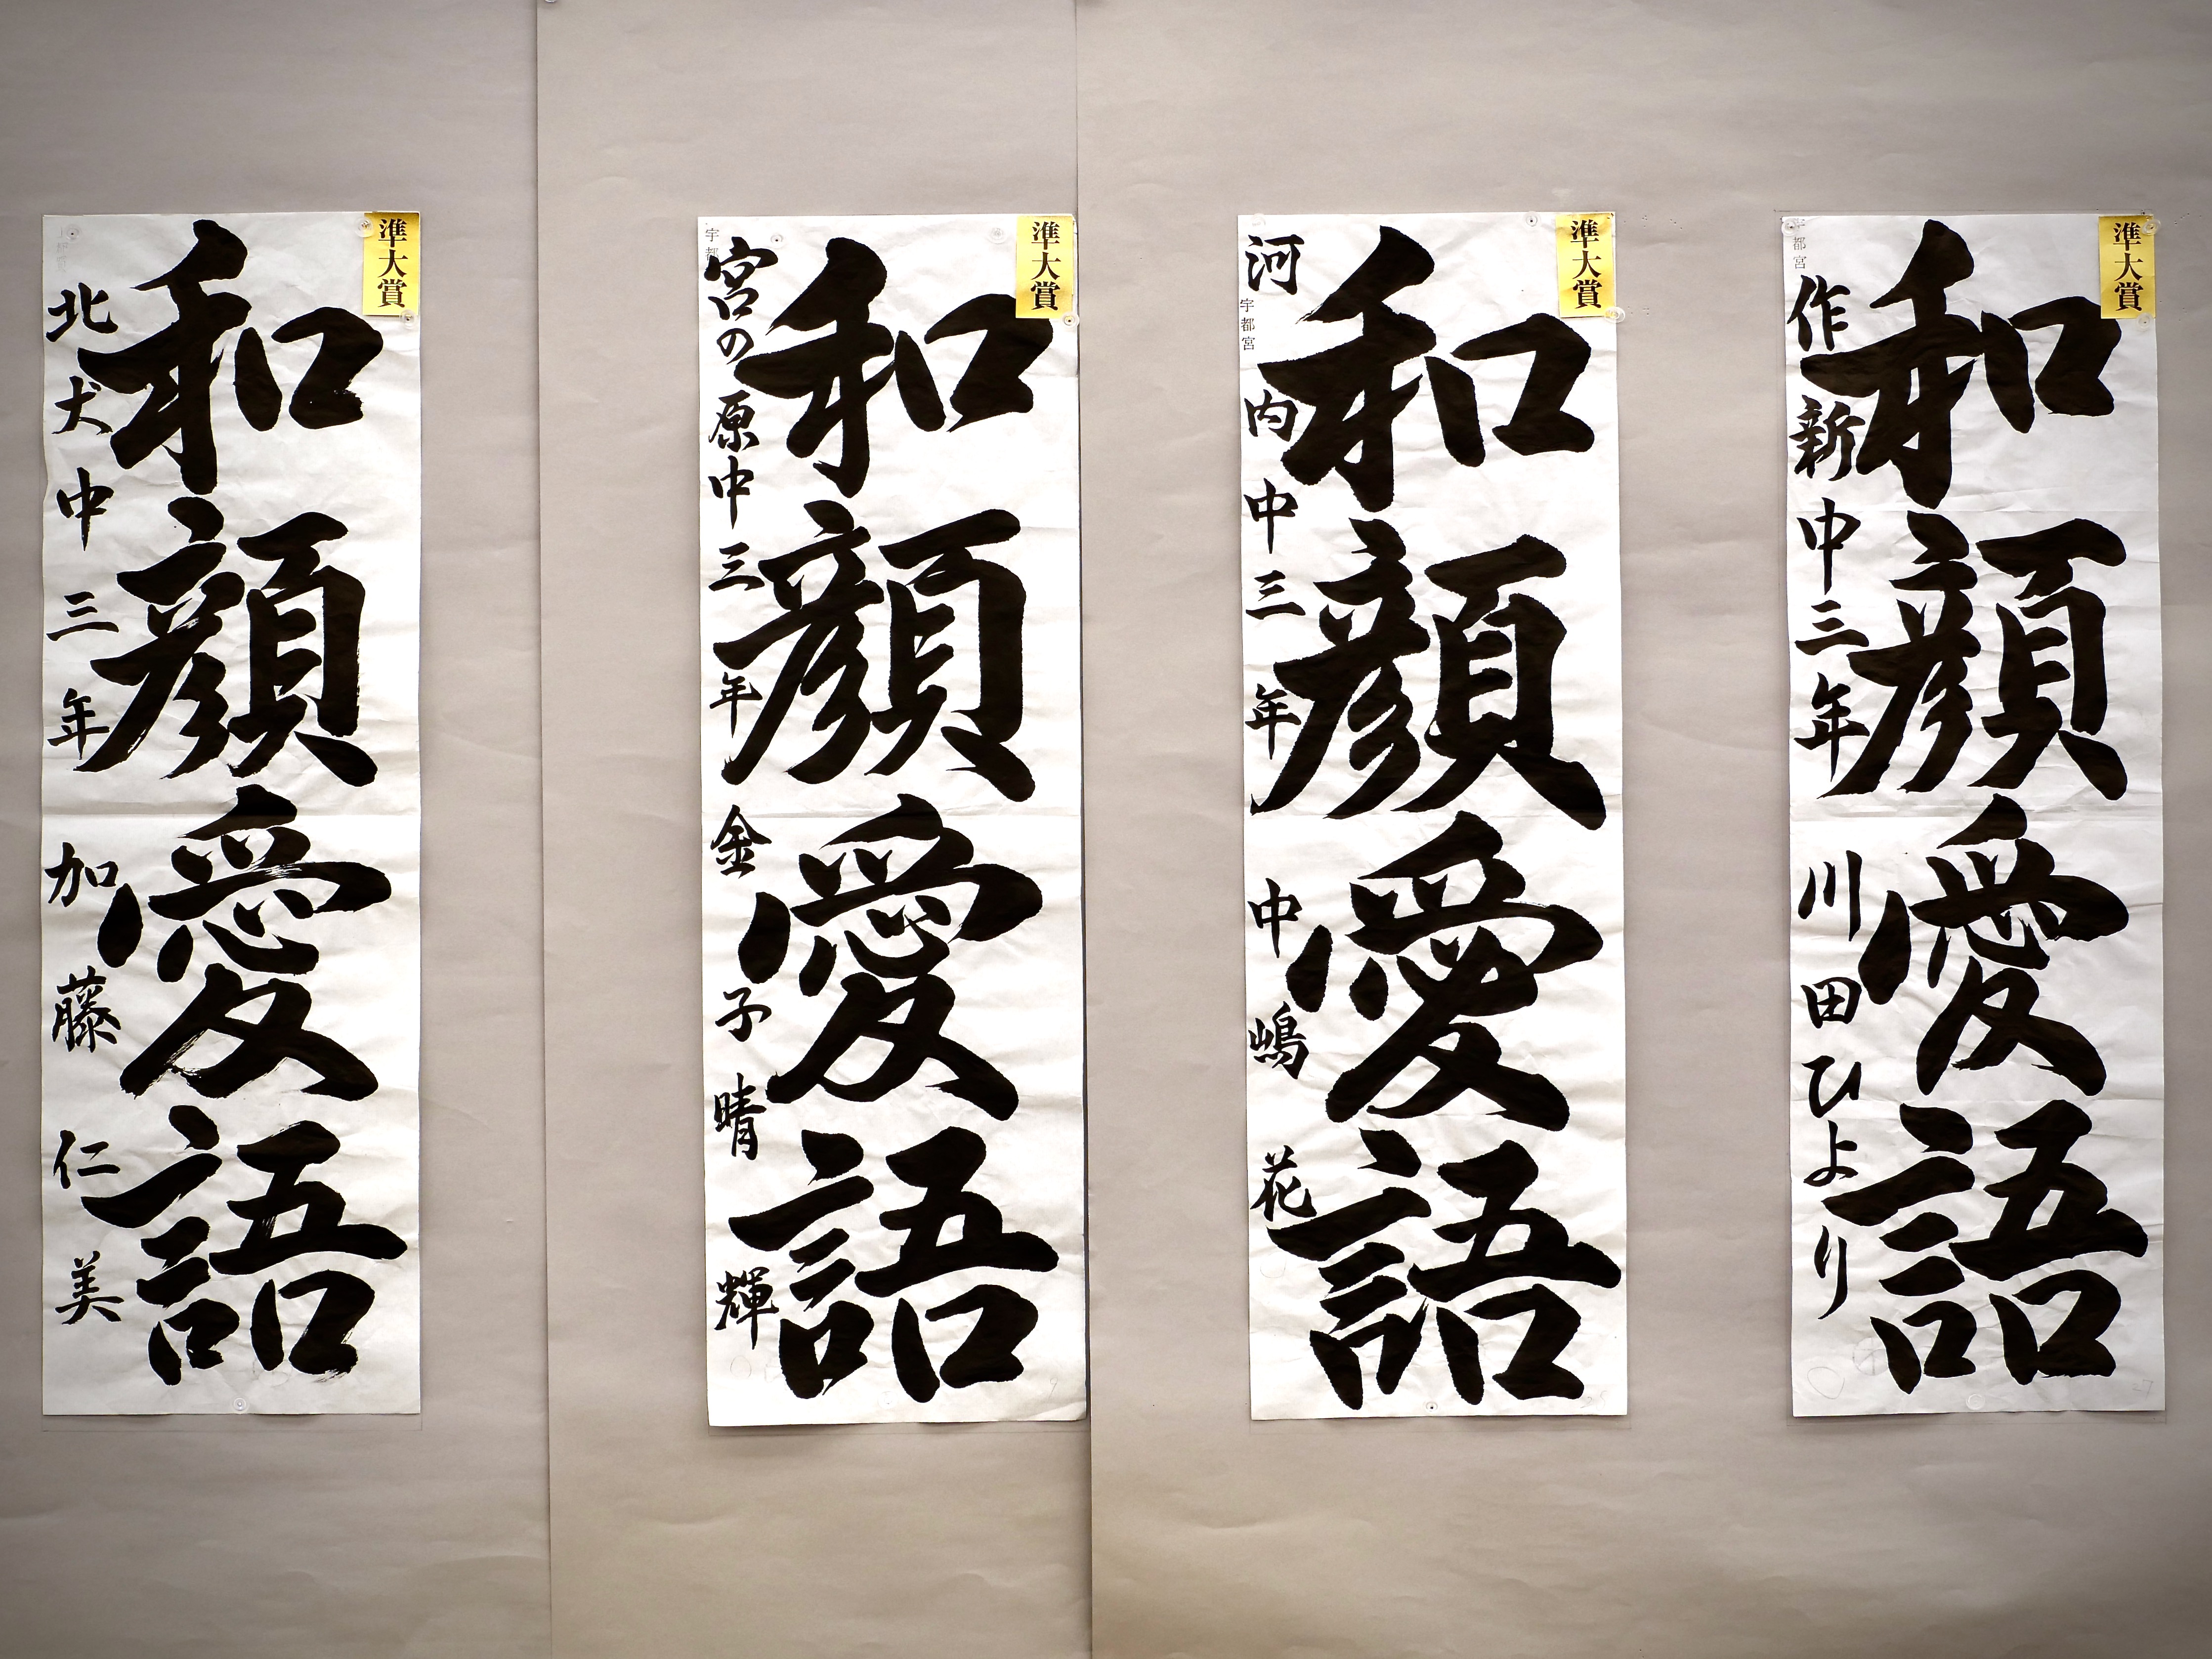 準大賞
和顔愛語
北犬中三年 加藤仁美
準大賞
和顔愛語
宮の原中三年 金子晴輝
準大賞
和顔愛語
宇都宮
河内中三年 中嶋花
準大賞
和顔愛語
宇都宮
作新中三年 川田ひより